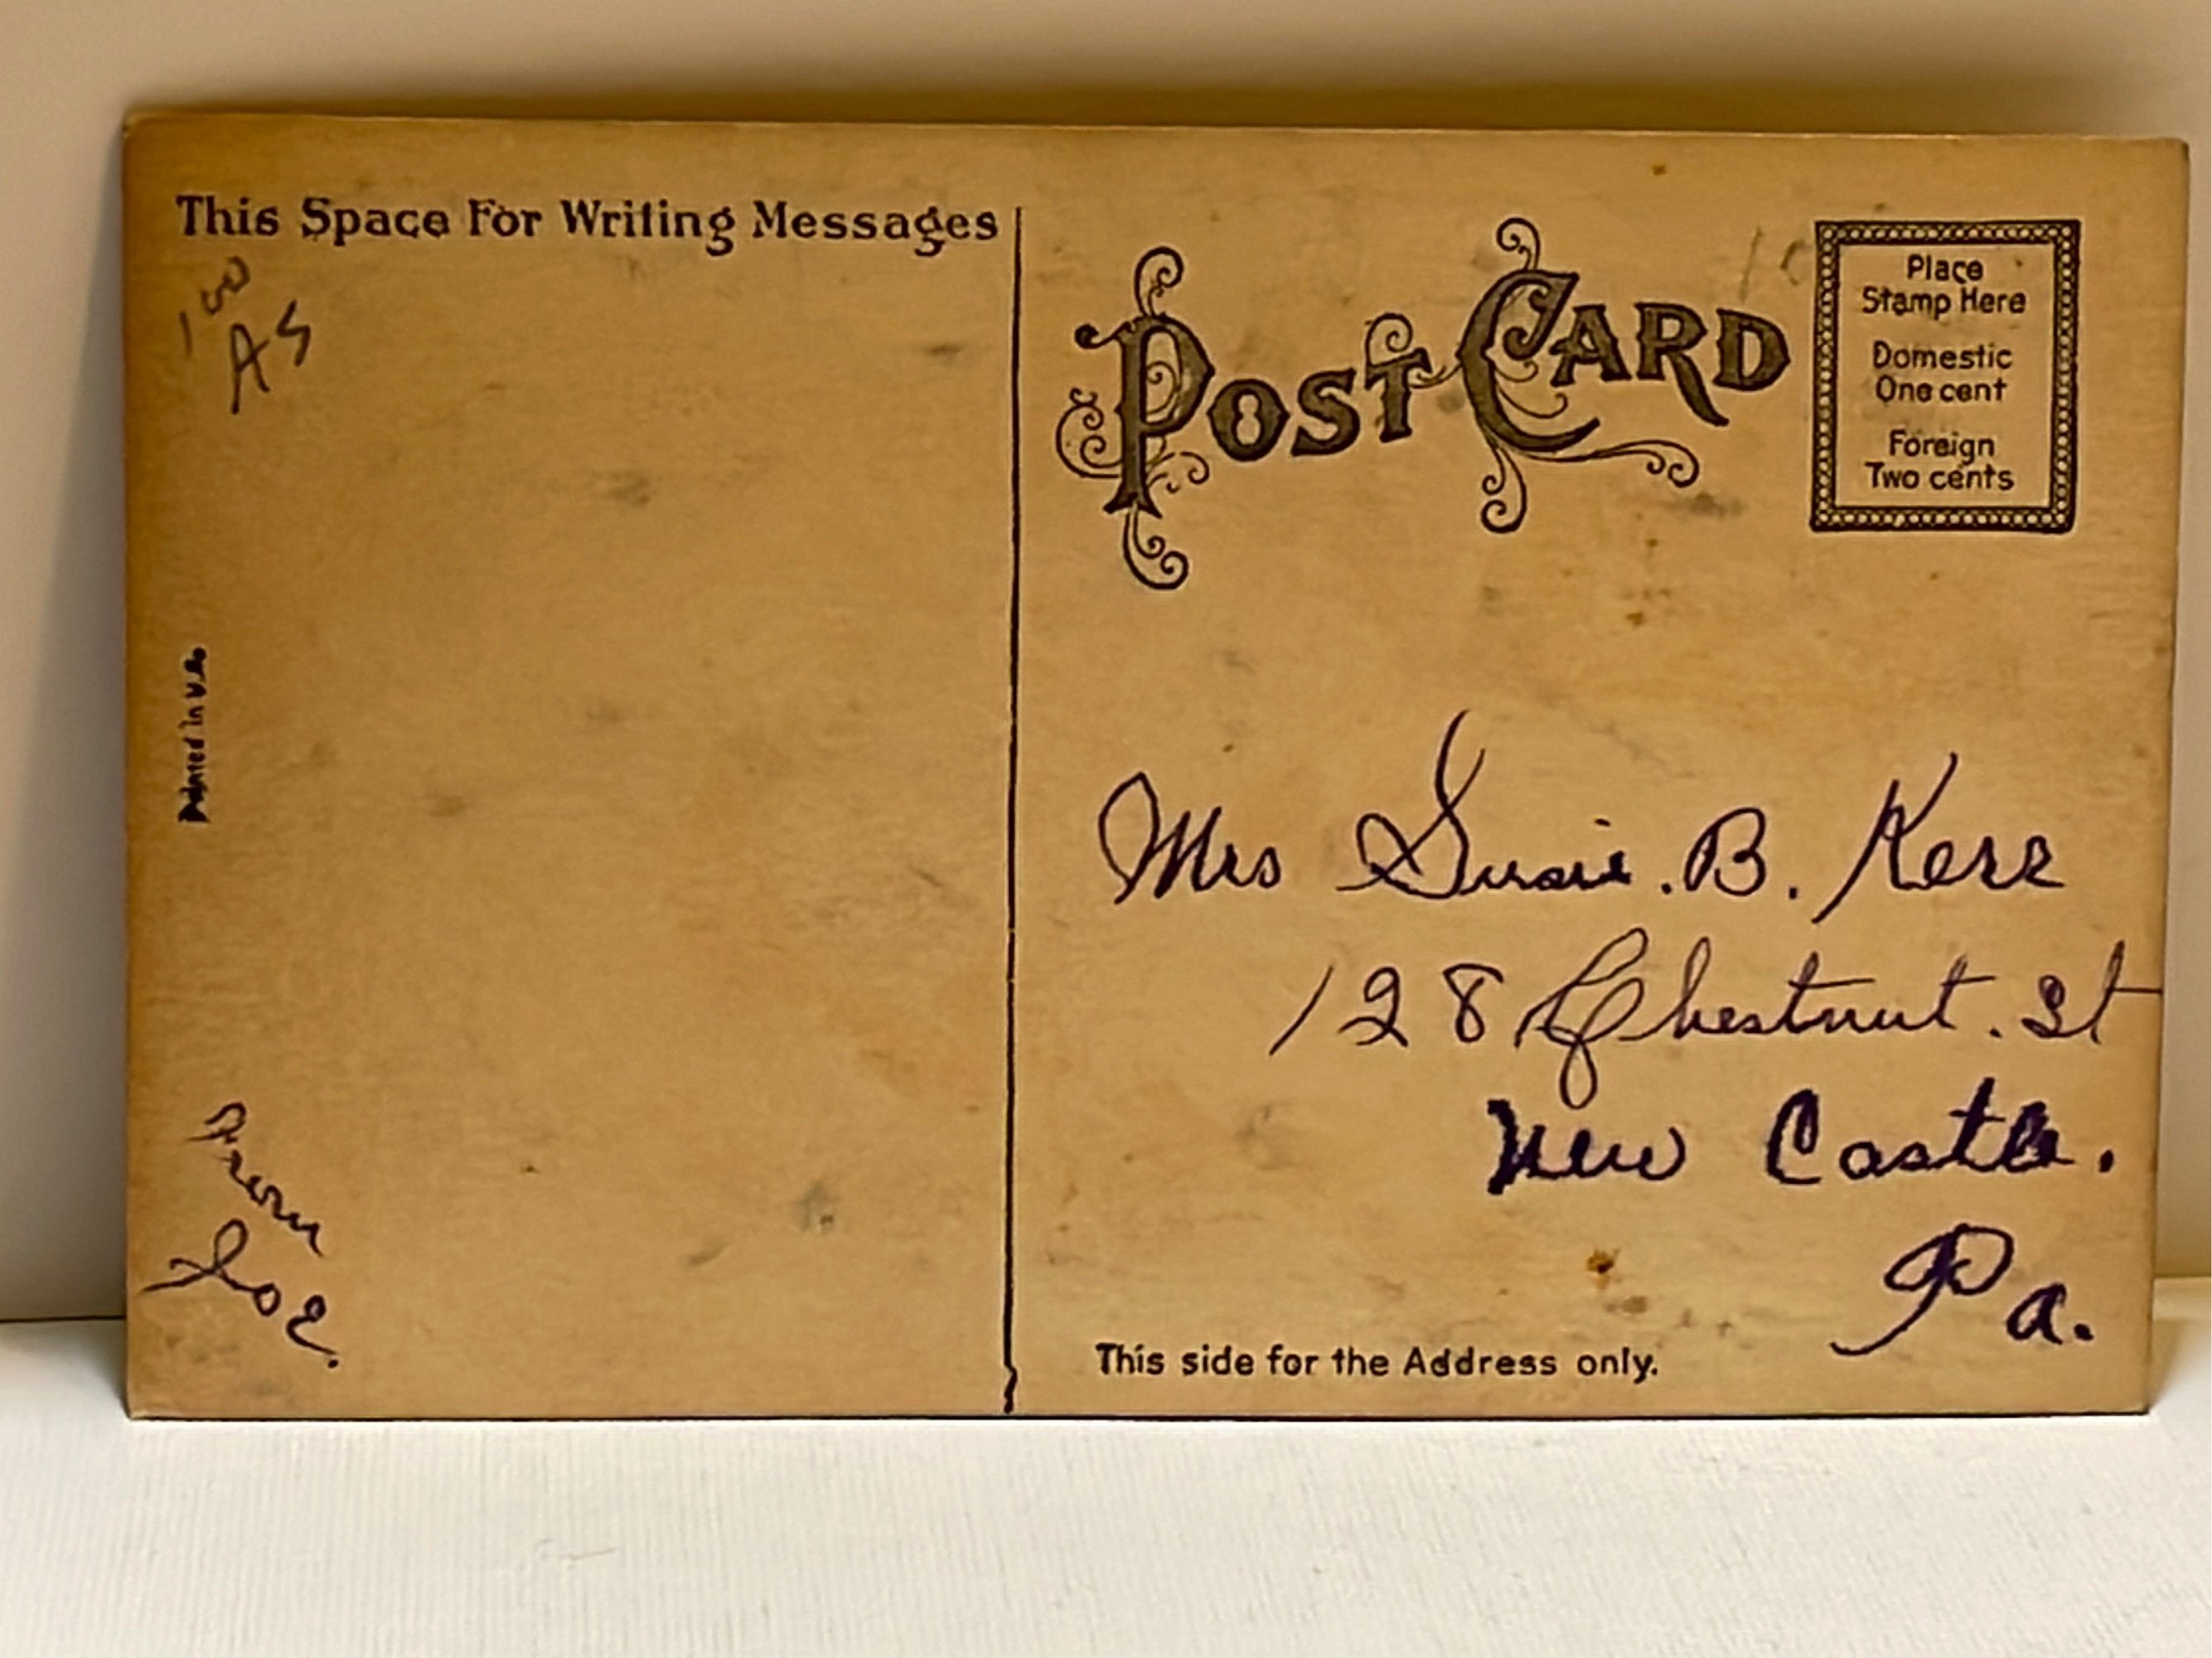 This Space For Writing Messages
100
AS
Printed in U.S.
From
Joe.
POST CARD
Place
Stamp Here
Domestic
One cent
Foreign
Two cents
Mrs Susie. B. Kerr
128 Chestnut. St
New Castle.
Pa.
This side for the Address only.